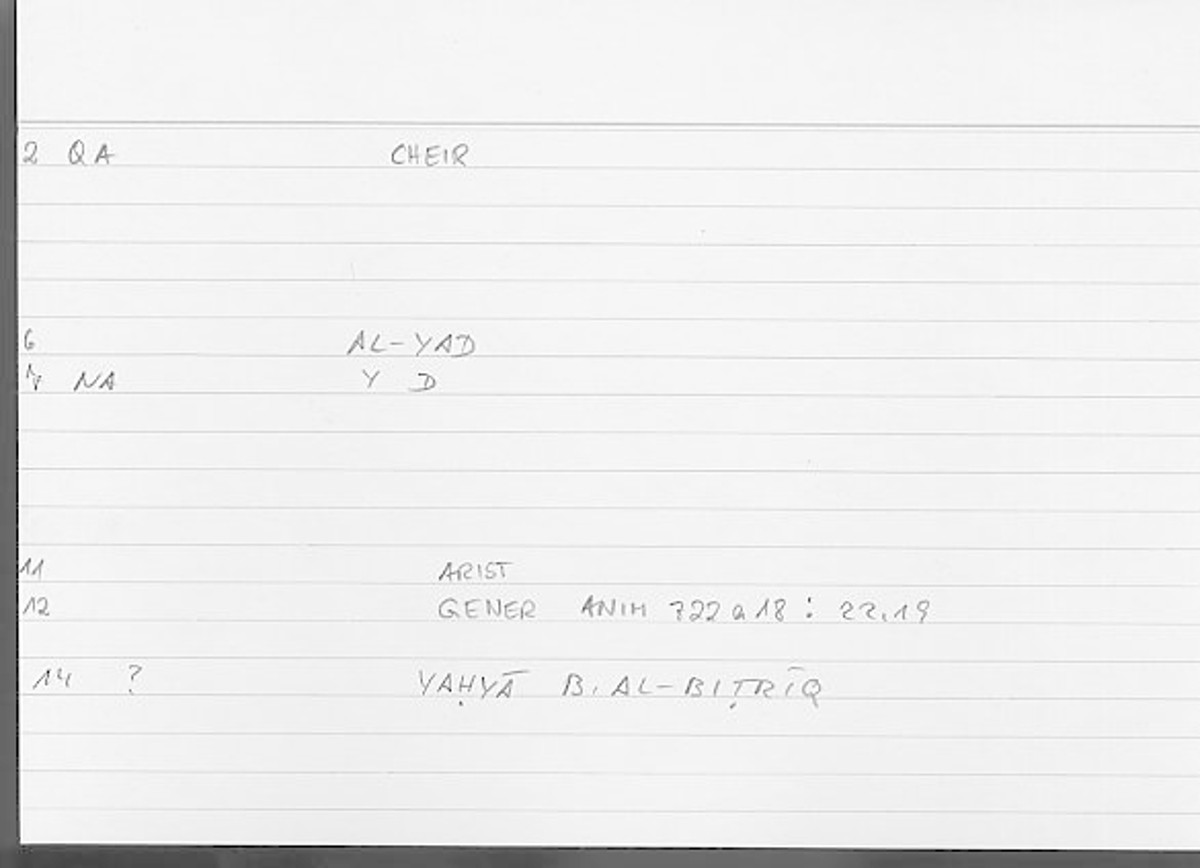 2 QA CHEIR
6 AL-YAD
NA Y D
11 ARIST
12 GENER ANIM 722a18 : 22.19
14 ? YAḤYĀ B. AL-BIṬRĪQ